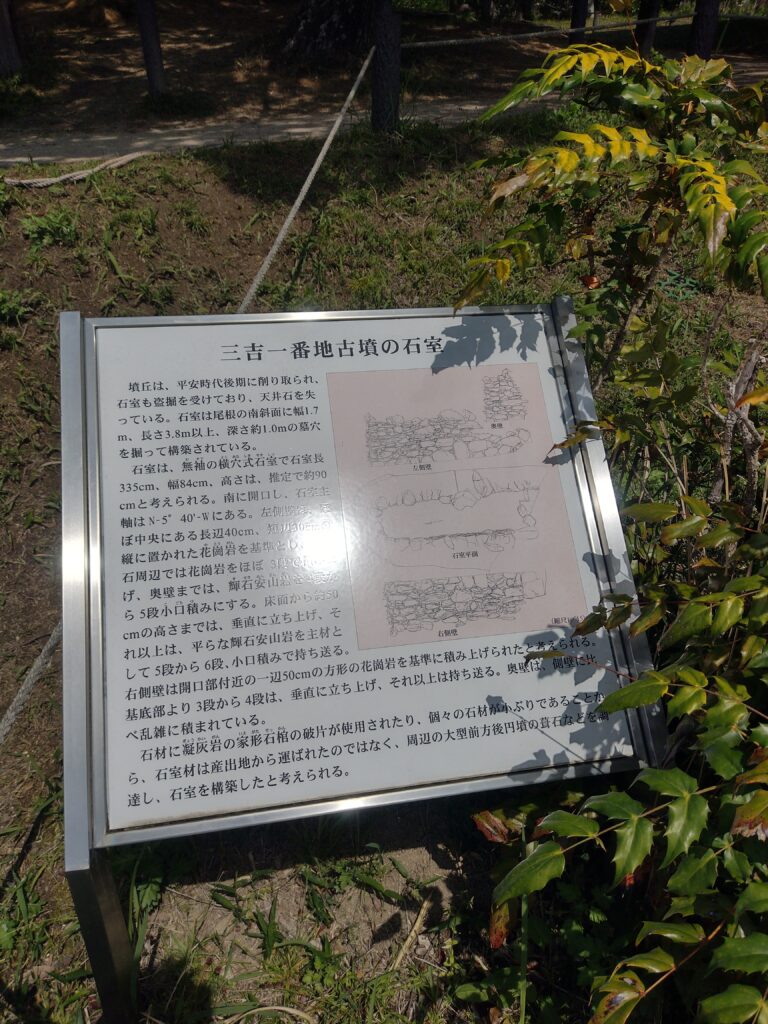 三吉一番地古墳の石室
墳丘は、平安時代後期に削り取られ、
石室も盗掘を受けており、天井石を失
っている。石室は尾根の南斜面に幅1.7
m、長さ3.8m以上、深さ約1.0mの墓穴
を掘って構築されている。
石室は、無袖の横穴式石室で石室長
335cm、幅84cm、高さは、推定で約90
cmと考えられる。南に開口し、石室主
軸はN-5°40′-Wにある。左側壁は、
ぼ中央にある長辺40cm、短辺30cm
縦に置かれた花崗岩を基準とし、
石周辺では花崗岩をほぼ
げ、奥壁までは、輝石安山岩を
ら5段小口積みにする。床面から約50
cmの高さまでは、垂直に立ち上げ、そ
れ以上は、平らな輝石安山岩を主材と
して5段から6段、小口積みで持ち送る。
右側壁は開口部付近の一辺50cmの方形の花崗岩を基準に積み上げられたと考えられる。
基底部より3段から4段は、垂直に立ち上げ、それ以上は持ち送る。奥壁は、側壁に比
べ乱雑に積まれている。
石材に凝灰岩の家形石棺の破片が使用されたり、個々の石材が小ぶりであることか
ら、石室材は産出地から運ばれたのではなく、周辺の大型前方後円墳の葺石などを調
達し、石室を構築したと考えられる。
奥壁
左側壁
石室平面
右側壁